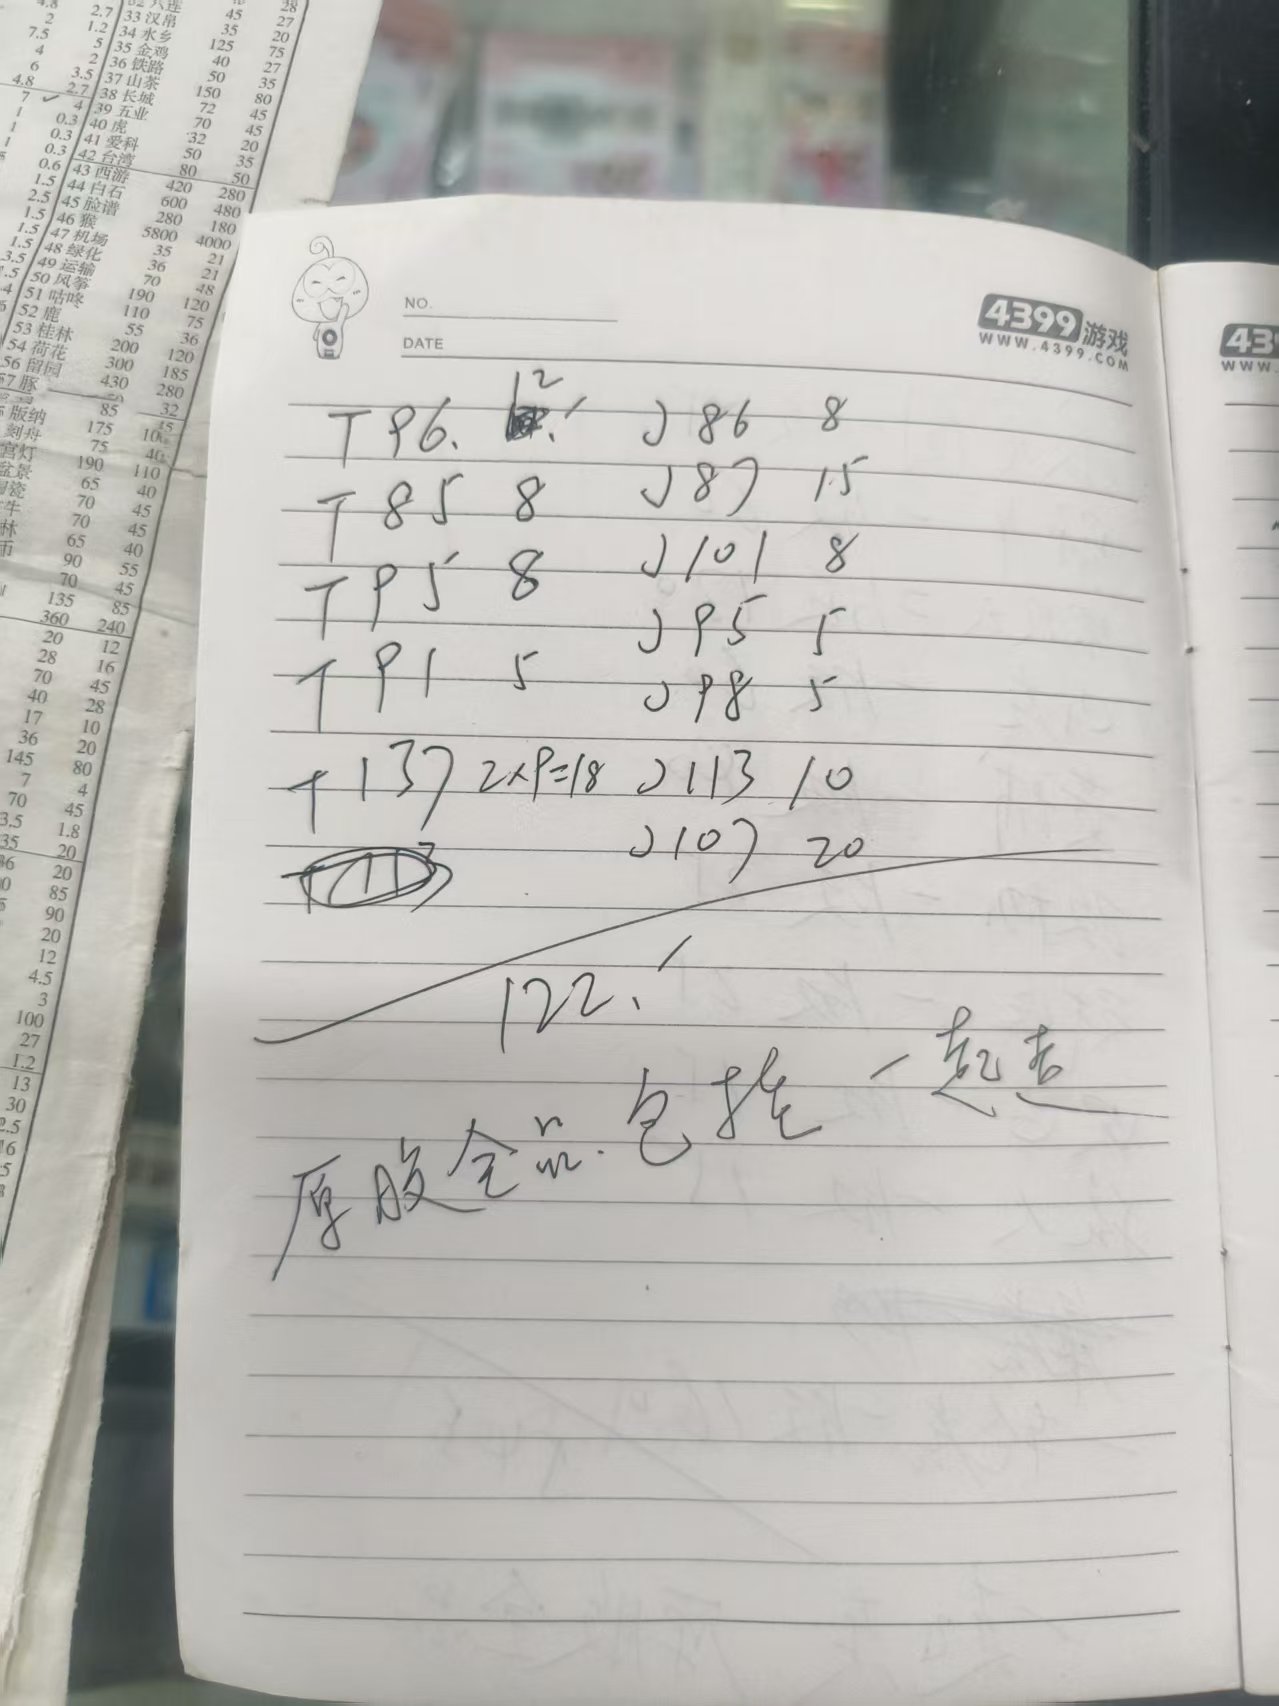 NO.
DATE
4399游戏
WWW.4399.COM
T 96. 12
J 86 8
T 85 8
J 87 15
T 95 8
J 101 8
T 91 5
J 95 5
J 98 5
T 137 2×9=18
J 113 10
J 107 20
122.
原胶全品.包挂一起走
32 汉帛 45 27
34 水乡 35 20
35 金鸡 125 75
36 铁路 40 27
37 山茶 50 35
38 长城 150 80
39 五业 72 45
40 虎 70 45
41 爱科 32 20
42 台湾 50 35
43 西游 80 50
44 白石 420 280
45 脸谱 600 480
46 猴 280 180
47 机场 5800 4000
48 绿化 35 21
49 运输 36 21
50 风筝 70 48
51 咕咚 190 120
52 鹿 110 75
53 桂林 55 36
54 荷花 200 120
56 留园 300 185
57 豚 430 280
版纳 85 32
刻舟 175 100
宫灯 75 40
盆景 190 110
65 40
70 45
70 45
65 40
90 55
70 45
135 85
360 240
20 12
28 16
70 45
40 28
17 10
36 20
145 80
7 4
70 45
3.5 1.8
35 20